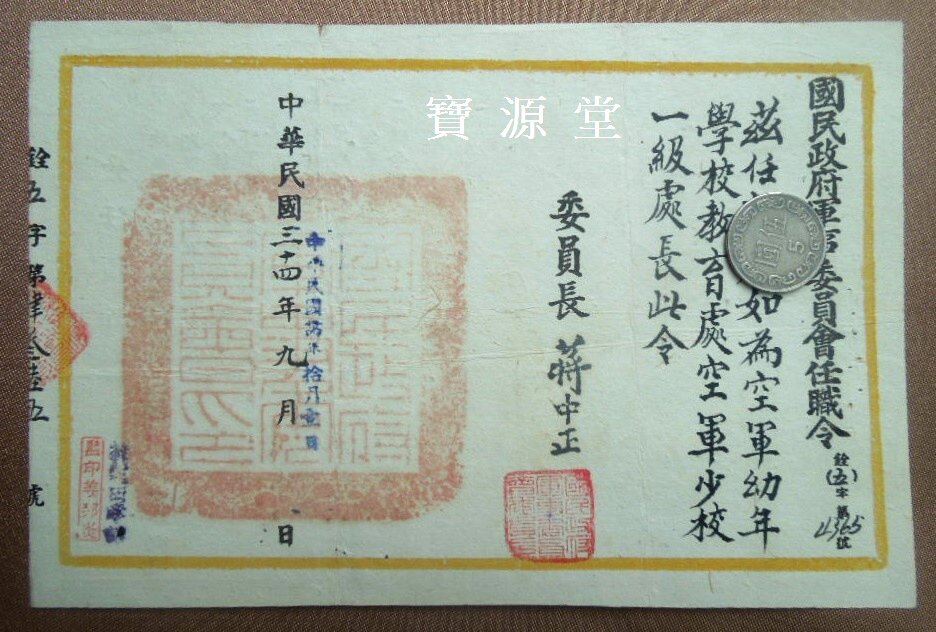 寶源堂
國民政府軍事委員會任職令
銓(五)字第4365號
茲任 如為空軍幼年
學校教育處空軍少校
一級處長此令
委員長 蔣中正
中華民國三十四年九月 日
中華民國 年拾月 日
銓五字第肆叁陸五號
伍圓
5